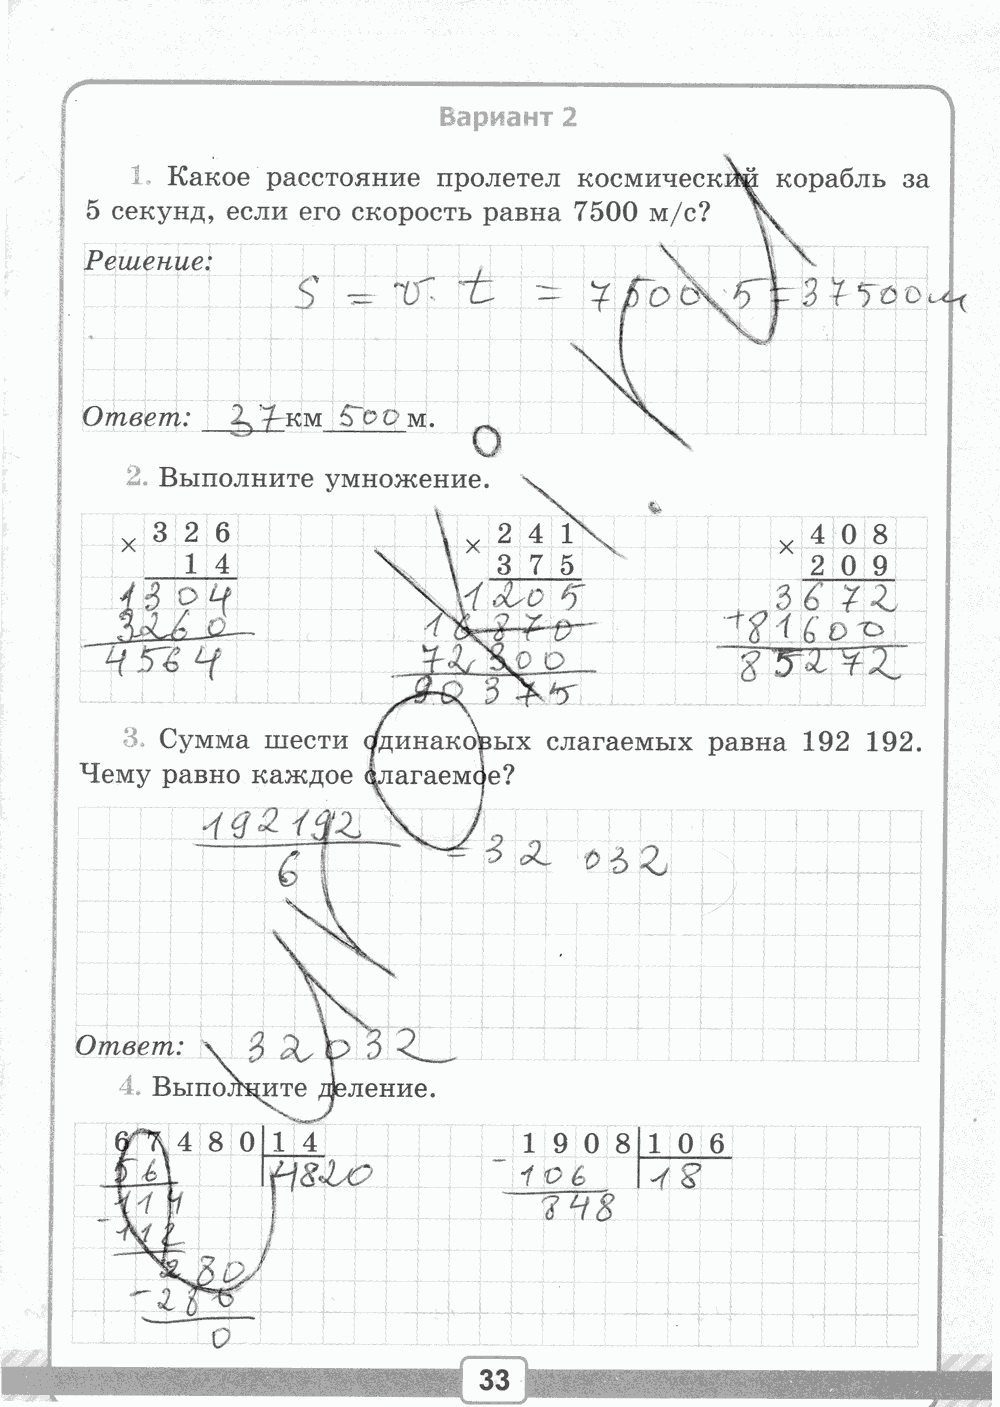 Вариант 2
1. Какое расстояние пролетел космический корабль за
5 секунд, если его скорость равна 7500 м/с?
Решение:
S = v · t = 7500 · 5 = 37500 м
Ответ: 37 км 500 м.
2. Выполните умножение.
× 326
14
1304
3260
4564
× 241
375
1205
16870
72300
90375
× 408
209
3672
+81600
85272
3. Сумма шести одинаковых слагаемых равна 192 192.
Чему равно каждое слагаемое?
192192
6
= 32 032
Ответ: 32032
4. Выполните деление.
67480 14
56 4820
114
- 112
280
- 280
0
1908 106
- 106 18
848
33